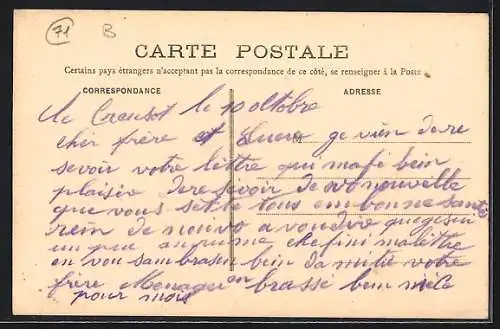 71
B
CARTE POSTALE
Certains pays étrangers n'acceptant pas la correspondance de ce côté, se renseigner à la Poste
CORRESPONDANCE
ADRESSE
le Creusot le 10 octobre
cher frère et ge vien de re
sevoir votre lettre qui ma fé bein
plaisir dere sevoir de vo nouvelle
que vous sette tous em bonne santé
rein de nouvo a voudire que gesui
un peu che fini ma lettre
en vou sambrasen bein da mitié votre
frère Menager
en brassé bein
pour mois